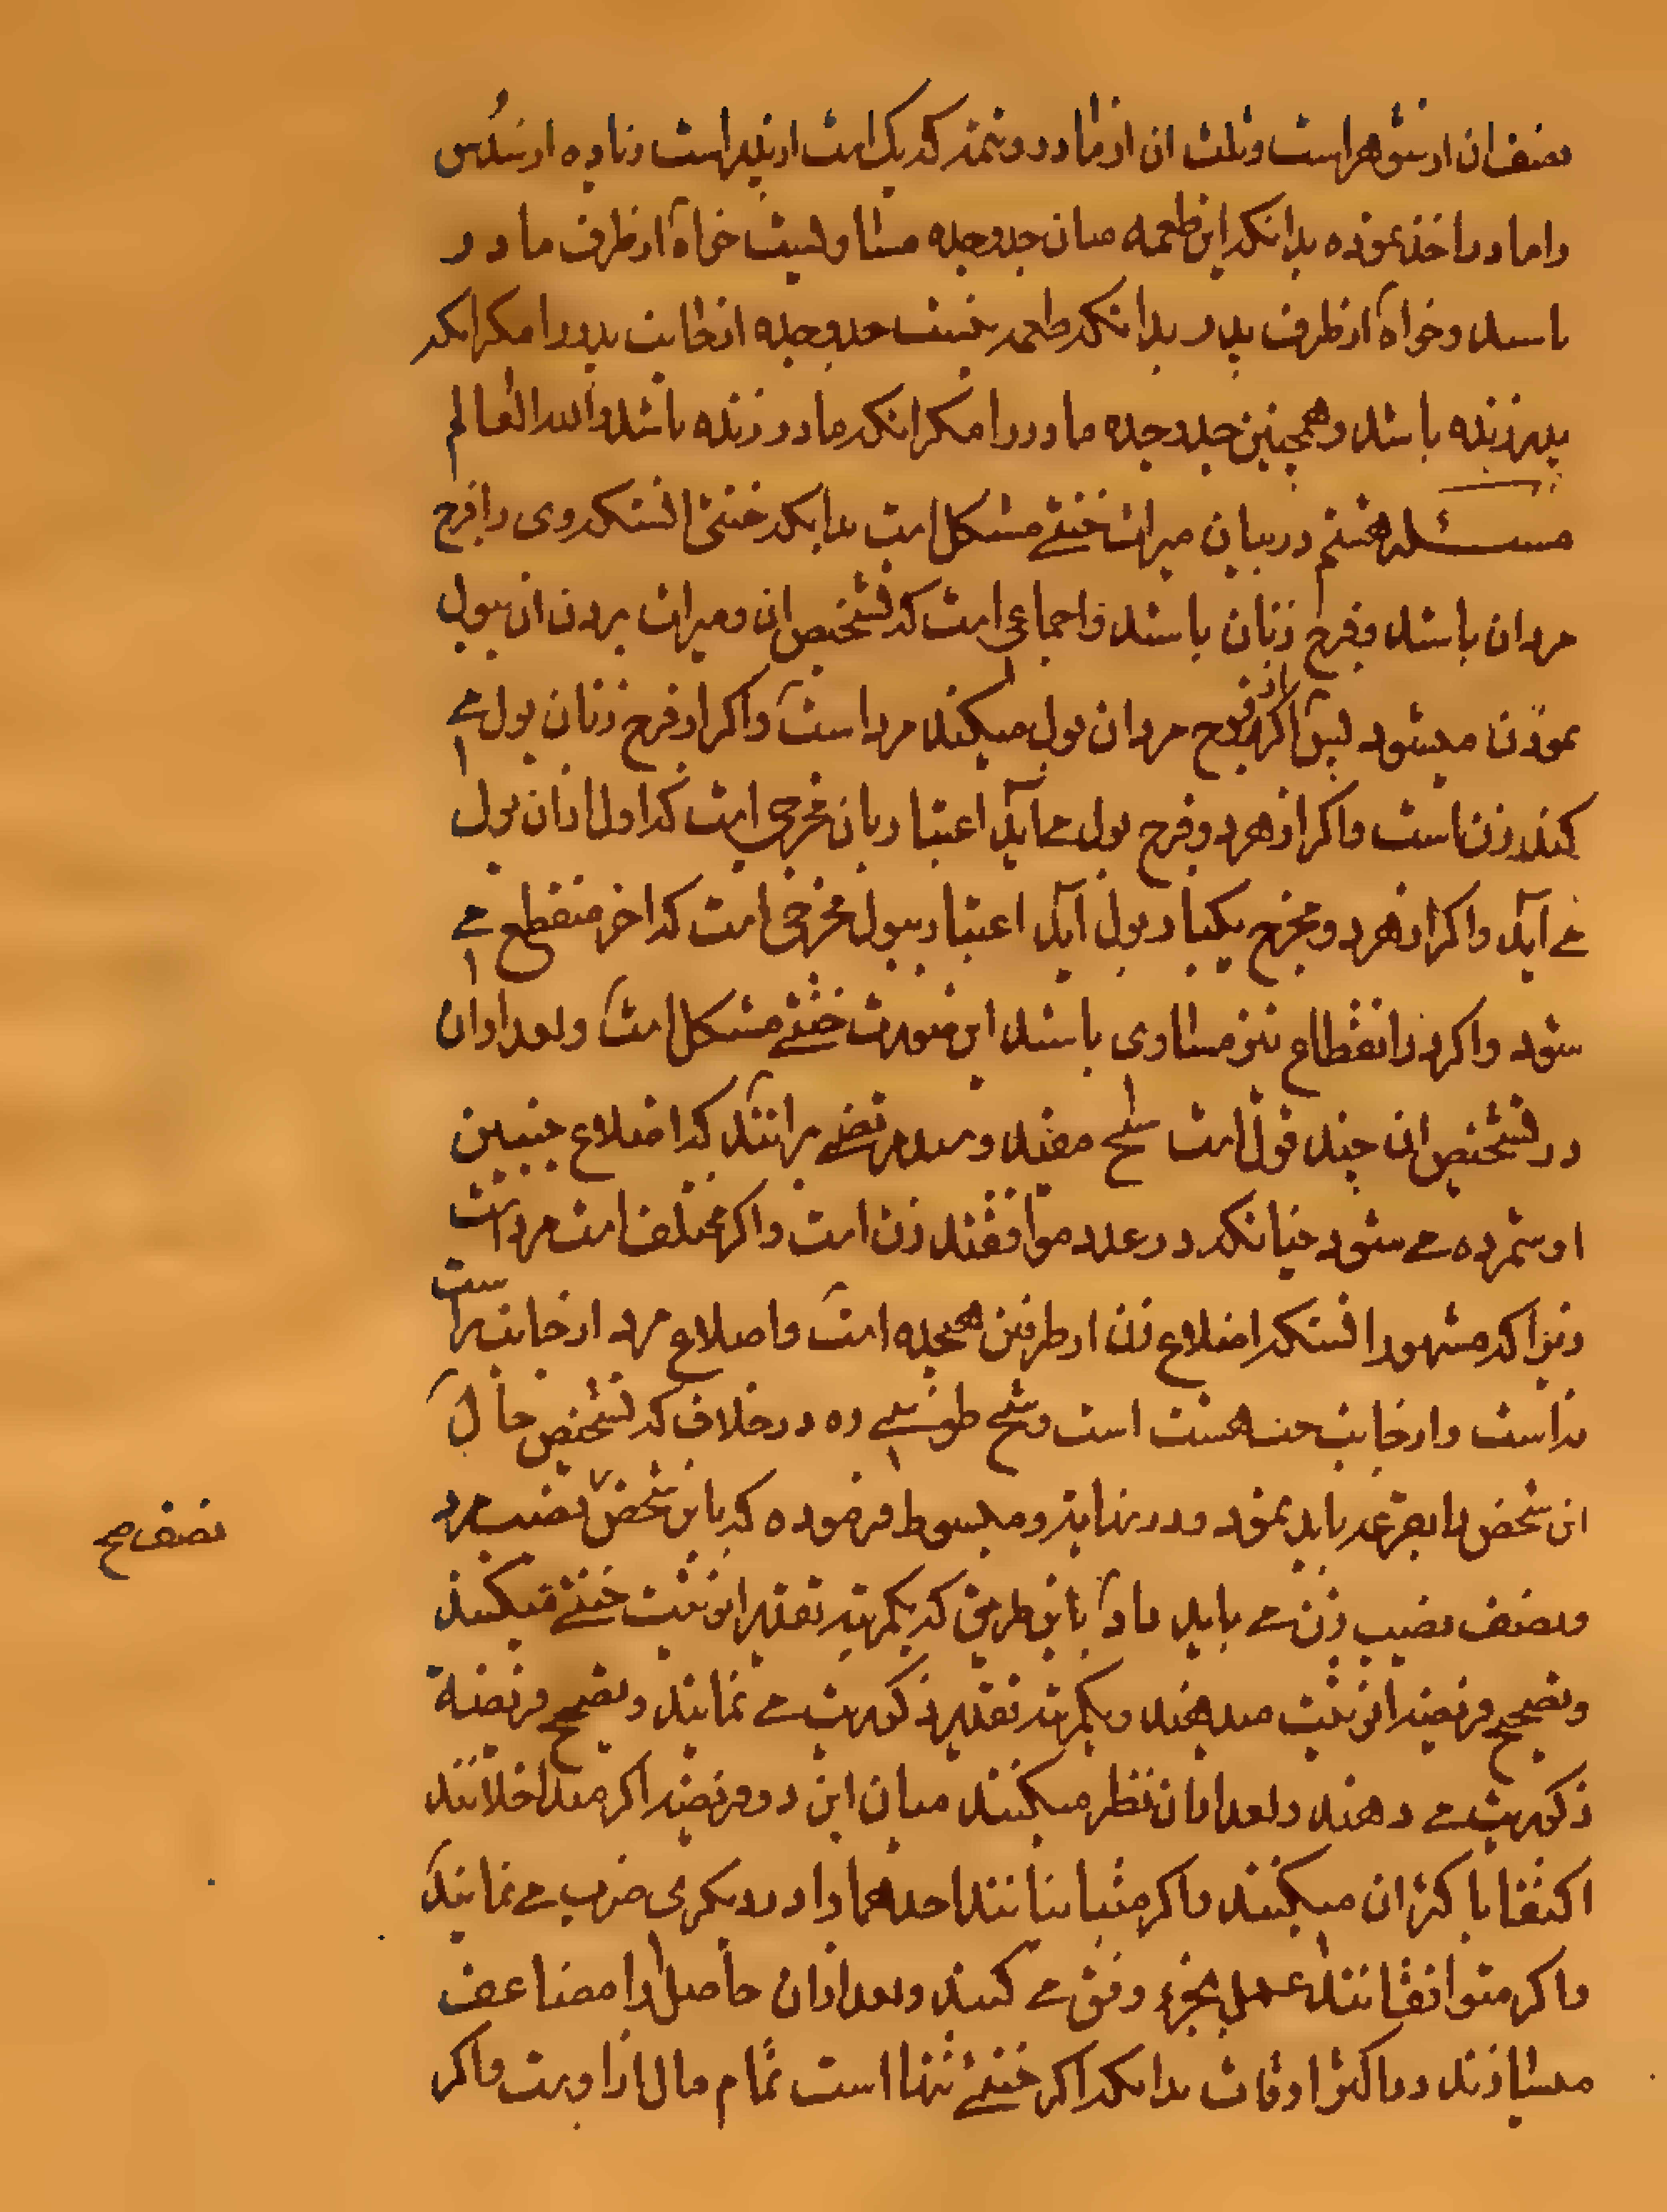 نصف ان از شوهر است و ثلث ان از مادر و تتمه که یک است از پدر است زیاده از سدس
را مادر اخذ نموده بدانکه این طعمه میان جد و جده مساویست خواه از طرف مادر
باشد و خواه از طرف پدر بدانکه طعمه نیست جد و جده از جانب پدر را مکر انکه
پدر زنده باشد و همچنین جد و جده مادر را مکر انکه مادر زنده باشد والله العالم
مسئله هشتم در بیان میراث خنثی مشکل است بدانکه خنثی انستکه وی را فرج
مردان باشد و فرج زنان باشد و اجماعی است که تشخیص ان و میراث بردن ان ببول
نمودن میشود پس اکر از فرج مردان بول میکند مرد است و اکر از فرج زنان بول می
کند زن است و اکر از هر دو فرج بول می اید اعتبار بان مخرجی است که اول ازان بول
می آید و اکر از هر دو مخرج یکبار بول آید اعتبار ببول مخرجی است که اخر منقطع می
شود و اکر در انقطاع نیز مساوی باشد این صورت خنثی مشکل است و بعد ازان
در تشخیص ان چند قول است شیخ مفید و سید مرتضی برانند که اضلاع جنبین
او شمرده می شود چنانکه در عدد موافقند زن است و اکر مختلف است مرد است
زیرا که مشهور انستکه اضلاع زن از طرفین هیجده است و اضلاع مرد از جانب راست
است و از جانب چپ هشت است و شیخ طوسی ره در خلاف که تشخیص حال
این شخص را بقرعه باید نمود و در نهایه و مبسوط فرموده که باین شخص نصیب مرد
نصف صح
و نصف نصیب زن می باید داد باین طریق که یکمرتبه تقدیر انوثیت خنثی میکنند
و تصحیح فریضه انوثیت میدهند و یکمرتبه تقدیر ذکوریت می نمایند و تصحیح فریضة
ذکوریت می دهند و بعد ازان نظر میکنند میان این دو فریضه اکر متداخلانند
اکتفا باکثر ان میکنند و اکر متباینانند احدهما را در دیکری ضرب می نمایند
و اکر متوافقانند عمل بجزء وفق می کنند و بعد ازان حاصل را مضاعف
میسازند در اکثر اوقات بدانکه اکر خنثی تنها است تمام مال ازاوست و اکر